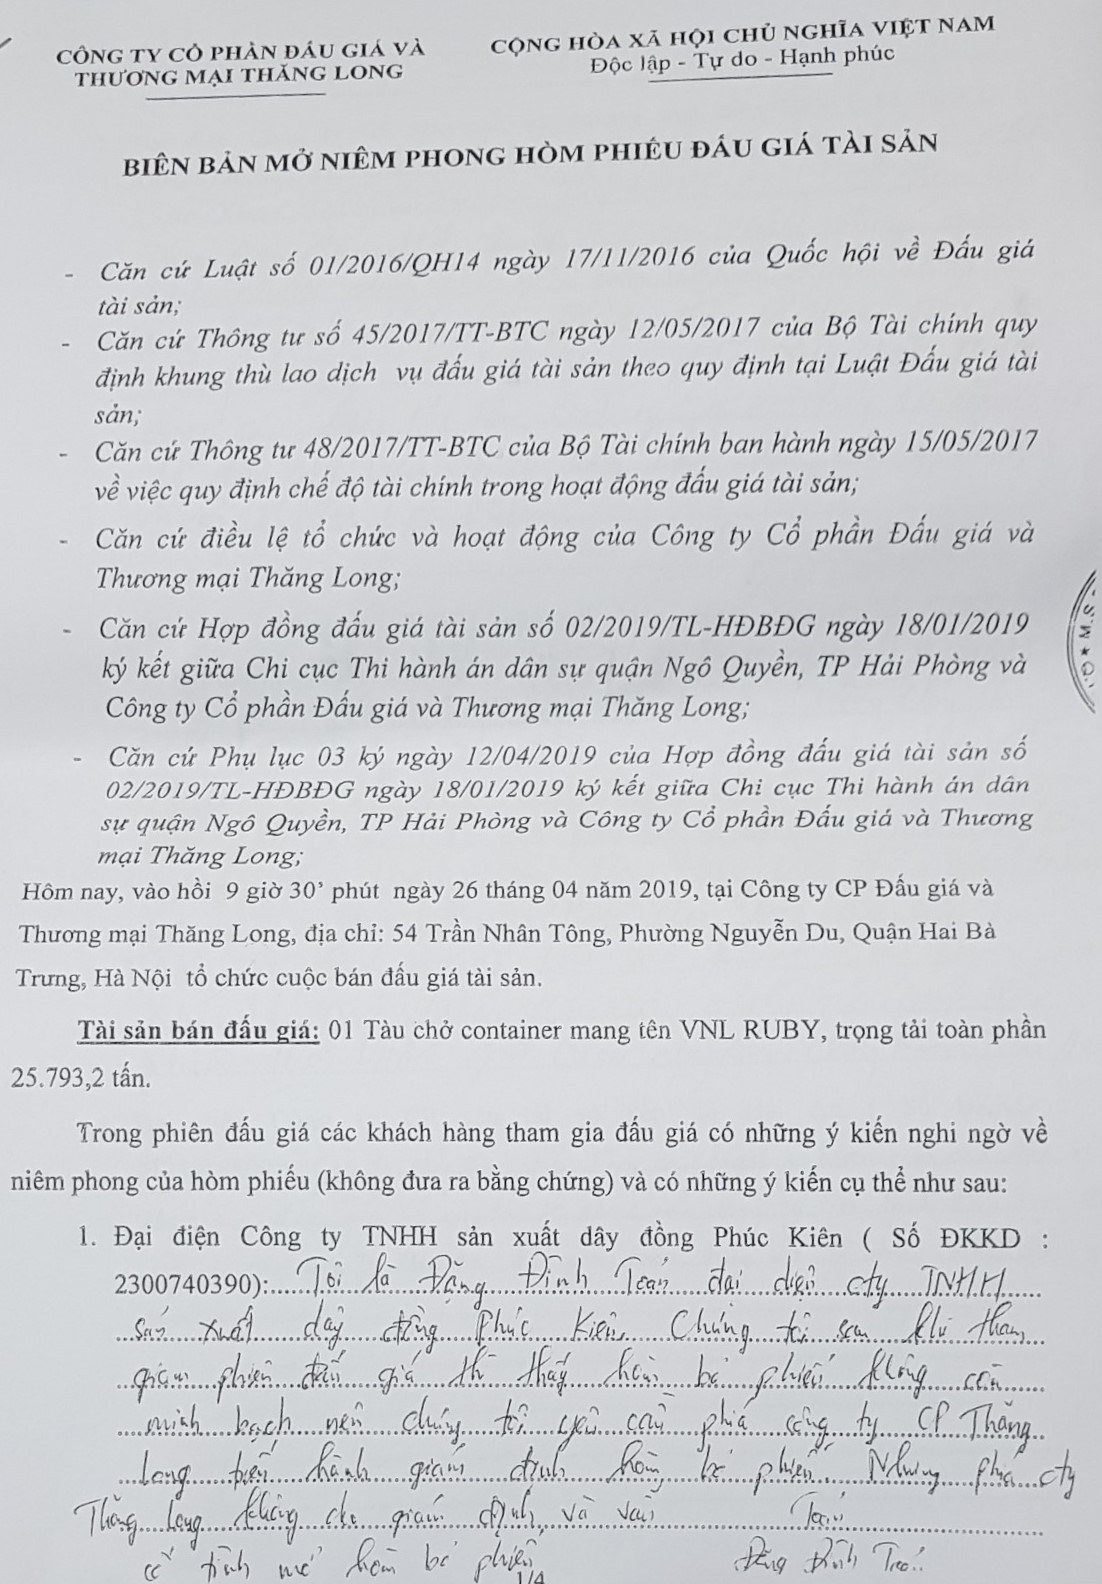 CÔNG TY CỔ PHẦN ĐẤU GIÁ VÀ
THƯƠNG MẠI THĂNG LONG
CỘNG HÒA XÃ HỘI CHỦ NGHĨA VIỆT NAM
Độc lập - Tự do - Hạnh phúc
BIÊN BẢN MỞ NIÊM PHONG HÒM PHIẾU ĐẤU GIÁ TÀI SẢN
- Căn cứ Luật số 01/2016/QH14 ngày 17/11/2016 của Quốc hội về Đấu giá
tài sản;
- Căn cứ Thông tư số 45/2017/TT-BTC ngày 12/05/2017 của Bộ Tài chính quy
định khung thù lao dịch vụ đấu giá tài sản theo quy định tại Luật Đấu giá tài
sản;
- Căn cứ Thông tư 48/2017/TT-BTC của Bộ Tài chính ban hành ngày 15/05/2017
về việc quy định chế độ tài chính trong hoạt động đấu giá tài sản;
- Căn cứ điều lệ tổ chức và hoạt động của Công ty Cổ phần Đấu giá và
Thương mại Thăng Long;
- Căn cứ Hợp đồng đấu giá tài sản số 02/2019/TL-HĐBĐG ngày 18/01/2019
ký kết giữa Chi cục Thi hành án dân sự quận Ngô Quyền, TP Hải Phòng và
Công ty Cổ phần Đấu giá và Thương mại Thăng Long;
- Căn cứ Phụ lục 03 ký ngày 12/04/2019 của Hợp đồng đấu giá tài sản số
02/2019/TL-HĐBĐG ngày 18/01/2019 ký kết giữa Chi cục Thi hành án dân
sự quận Ngô Quyền, TP Hải Phòng và Công ty Cổ phần Đấu giá và Thương
mại Thăng Long;
Hôm nay, vào hồi 9 giờ 30' phút ngày 26 tháng 04 năm 2019, tại Công ty CP Đấu giá và
Thương mại Thăng Long, địa chỉ: 54 Trần Nhân Tông, Phường Nguyễn Du, Quận Hai Bà
Trưng, Hà Nội tổ chức cuộc bán đấu giá tài sản.
Tài sản bán đấu giá: 01 Tàu chở container mang tên VNL RUBY, trọng tải toàn phần
25.793,2 tấn.
Trong phiên đấu giá các khách hàng tham gia đấu giá có những ý kiến nghi ngờ về
niêm phong của hòm phiếu (không đưa ra bằng chứng) và có những ý kiến cụ thể như sau:
1. Đại điện Công ty TNHH sản xuất dây đồng Phúc Kiên ( Số ĐKKD :
2300740390):....Tôi là Đặng Đình Toán đại diện cty TNHH
sản xuất dây đồng Phúc Kiên, Chúng tôi sau khi tham
gian phiên đấu giá thì thấy hòm bỏ phiếu không còn
minh bạch nên chúng tôi yêu cầu phía công ty CP Thăng
Long tiến hành giám định hòm bỏ phiếu Nhưng phía cty
Thăng Long không cho giám định, và vẫn Toán
cố tình mở hòm bỏ phiếu Đặng Đình Toán
1/4
S.M ★ Q.